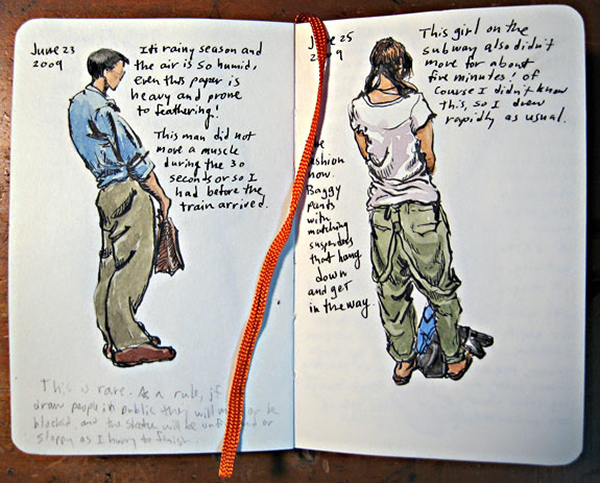 June 23
2009
It's rainy season and
the air is so humid,
even this paper is
heavy and prone
to feathering!
This man did not
move a muscle
during the 30
seconds or so I
had before the
train arrived.
This is rare. As a rule, if
draw people in public they will move or be
blocked and the sketch will be unfinished or
sloppy as I hurry to finish.
June 25
2009
This girl on the
subway also didn't
move for about
five minutes! Of
course I didn't know
this, so I drew
rapidly as usual.
fashion
now.
Baggy
pants
with
matching
suspenders
that hang
down
and get
in the way.